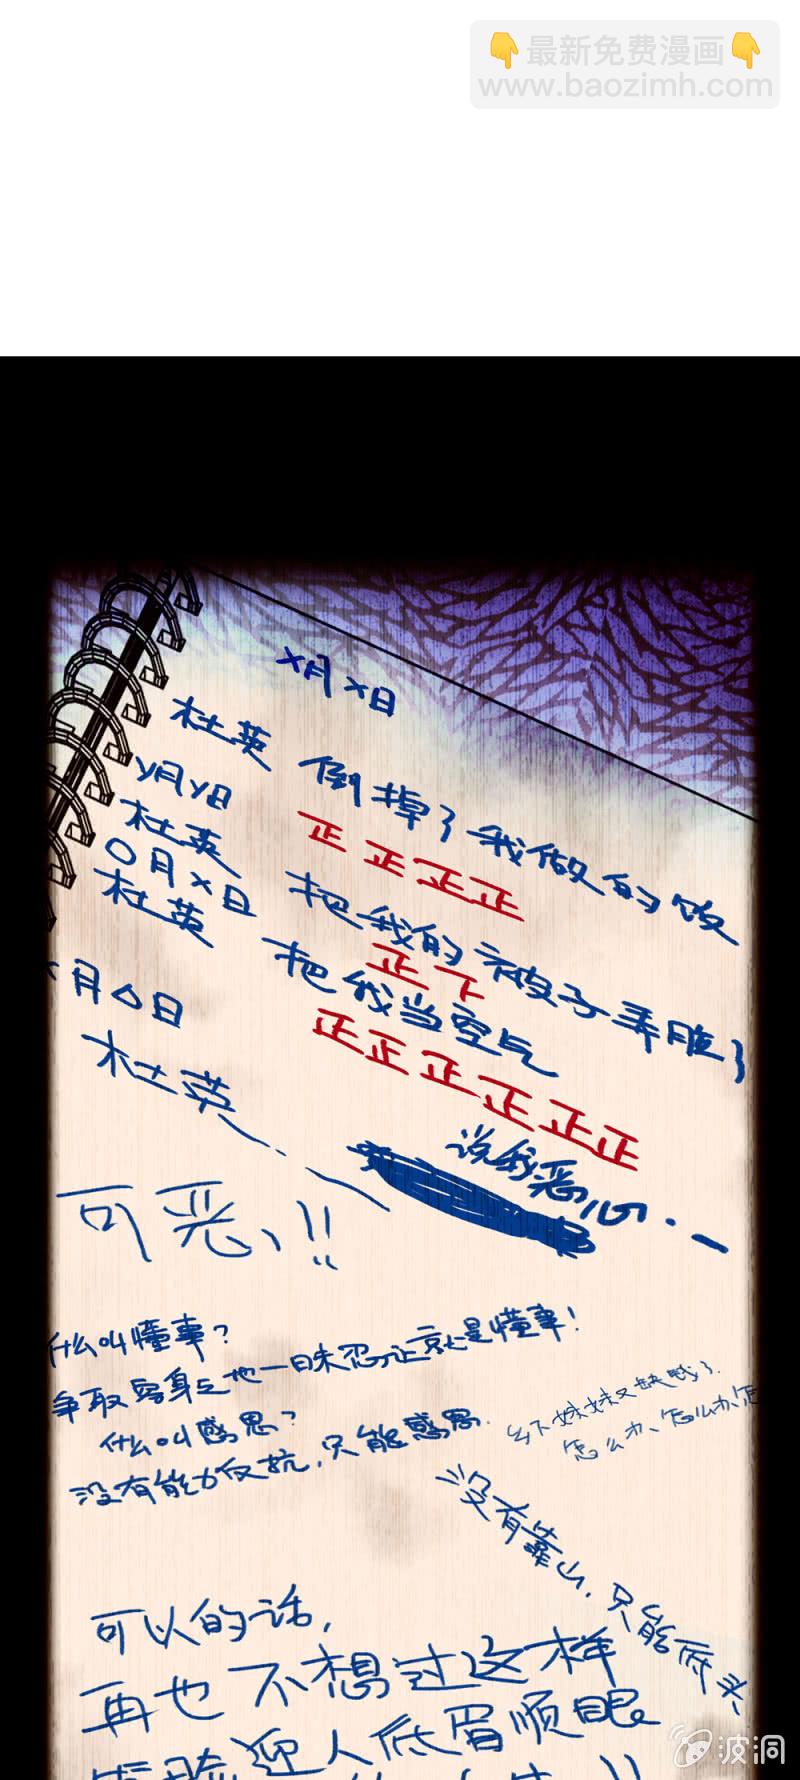 👇最新免费漫画👇
www.baozimh.com
X月X日
杜英 倒掉了我做的饭
正正正正
Y月Y日
杜英 把我的被子弄脏了
正下
O月X日
杜英 把我当空气
正正正正正正
X月△日
杜英……
说我恶心……
可恶!!
什么叫懂事?
一味忍让就是懂事!
什么叫感恩?
没有能力反抗,只能感恩.
乡下妹妹又缺钱了.
怎么办、怎么办、怎
没有靠山,只能低头
可以的话,
再也不想过这样
笑脸迎人低眉顺眼
波洞